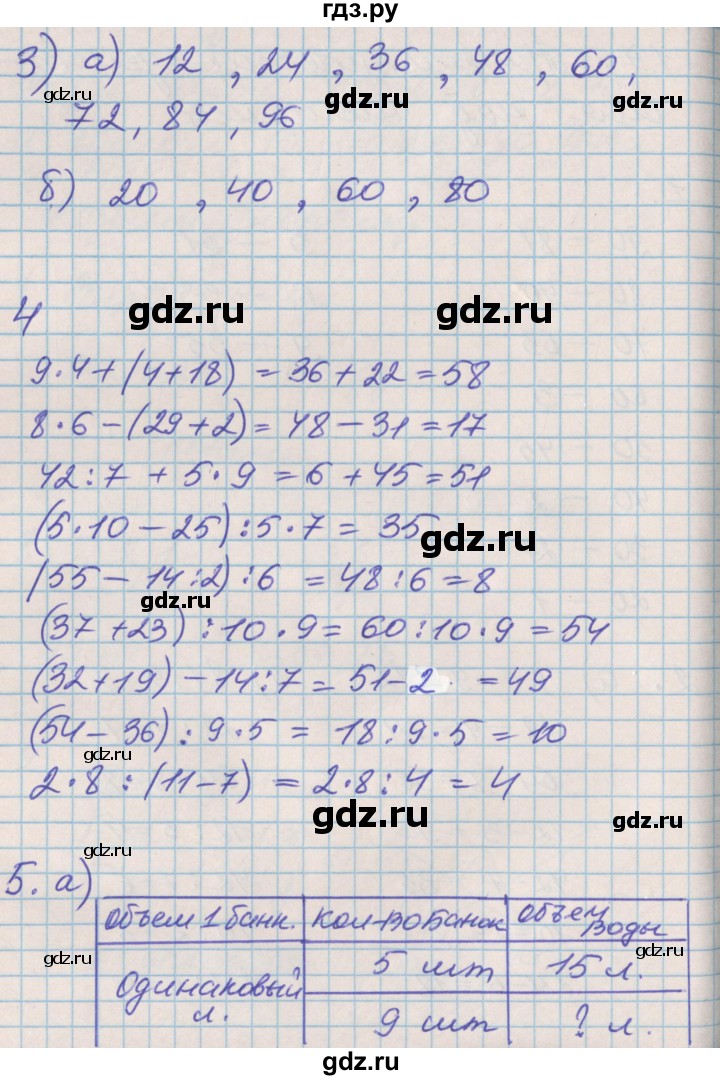 гдз.ру
3) а) 12 , 24 , 36 , 48 , 60,
gdz.ru gdz.ru gdz.ru
72, 84, 96
б) 20 , 40 , 60 , 80
4
gdz.ru gdz.ru
9·4+(4+18) = 36+22=58
8·6-(29+2)= 48-31=17
42:7 + 5·9 = 6+45=51
(5·10-25):5·7= 35
gdz.ru
(55-14:2):6 = 48:6=8
gdz.ru
(37+23):10·9= 60:10·9=54
(32+19)-14:7= 51-2 =49
(54-36):9·5= 18:9·5=10
gdz.ru
2·8:(11-7) = 2·8:4=4
gdz.ru gdz.ru
gdz.ru
5. а)
Объем 1 банк. Кол-во Банок Объем Воды
gdz.ru gdz.ru
Одинаковый л. 5 шт 15 л.
9 шт ? л.
gdz.ru